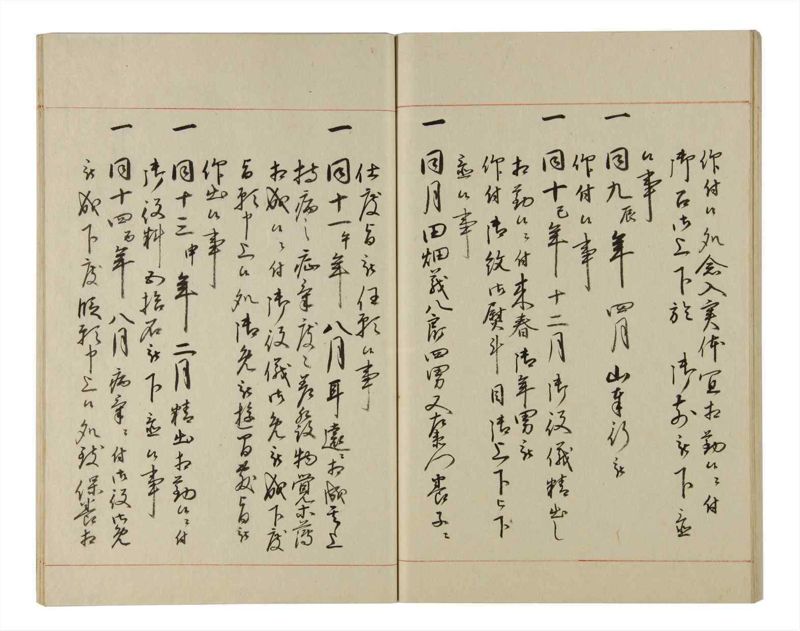 作付候処念入実体宜相勤候ニ付
御召御上下於 御前被下置
候事
一 同九辰年 四月山奉行被
作付候事
一 同十巳年 十二月御役儀精出し
相勤候ニ付来春御年男被
作付御紋御熨斗目御上下被下
置候事
一 同月田畑義八唐四男又左衛門養子ニ
仕度旨被任願候事
一 同十一午年 八月耳遠ニ相成其上
持病之疝気度々差発物覚等薄
相成候ニ付御役儀御免被成下度
旨願申上候処御免被遊旨
作出候事
一 同十三申年 二月精出相勤候ニ付
御役料五拾石被下置候事
一 同十四酉年 八月病気ニ付御役御免
被成下度段願申上候処致保養相